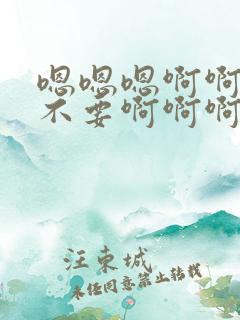 嗯嗯嗯啊啊
不要啊啊啊
汪东城
未经同意禁止转载